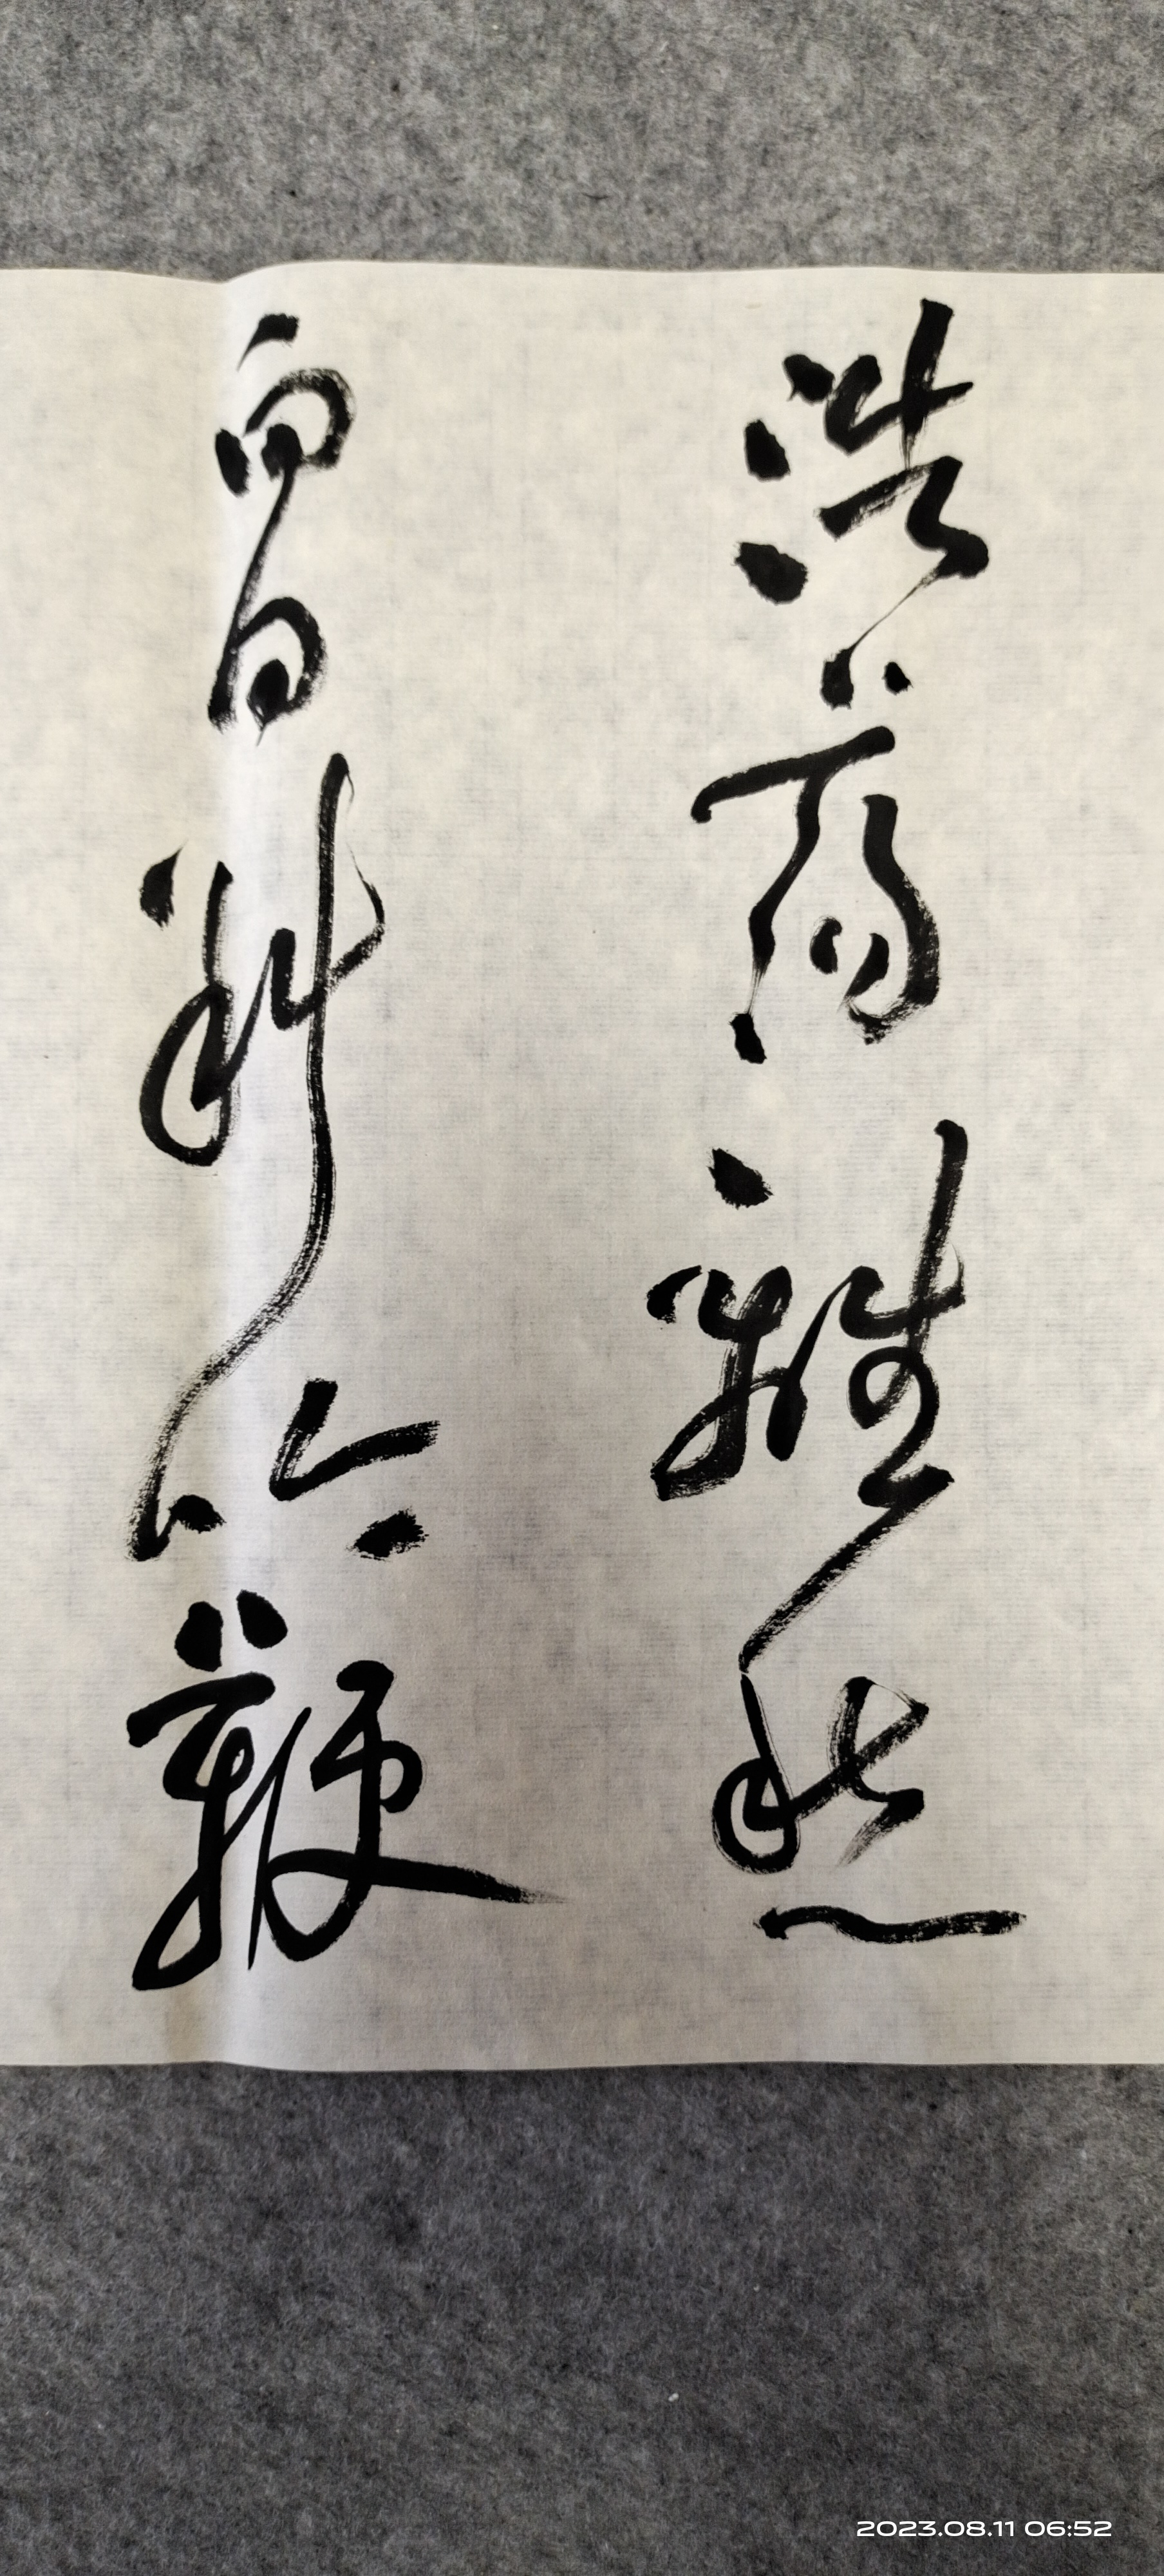 浩荡离愁
白日斜吟鞭
2023.08.11 06:52